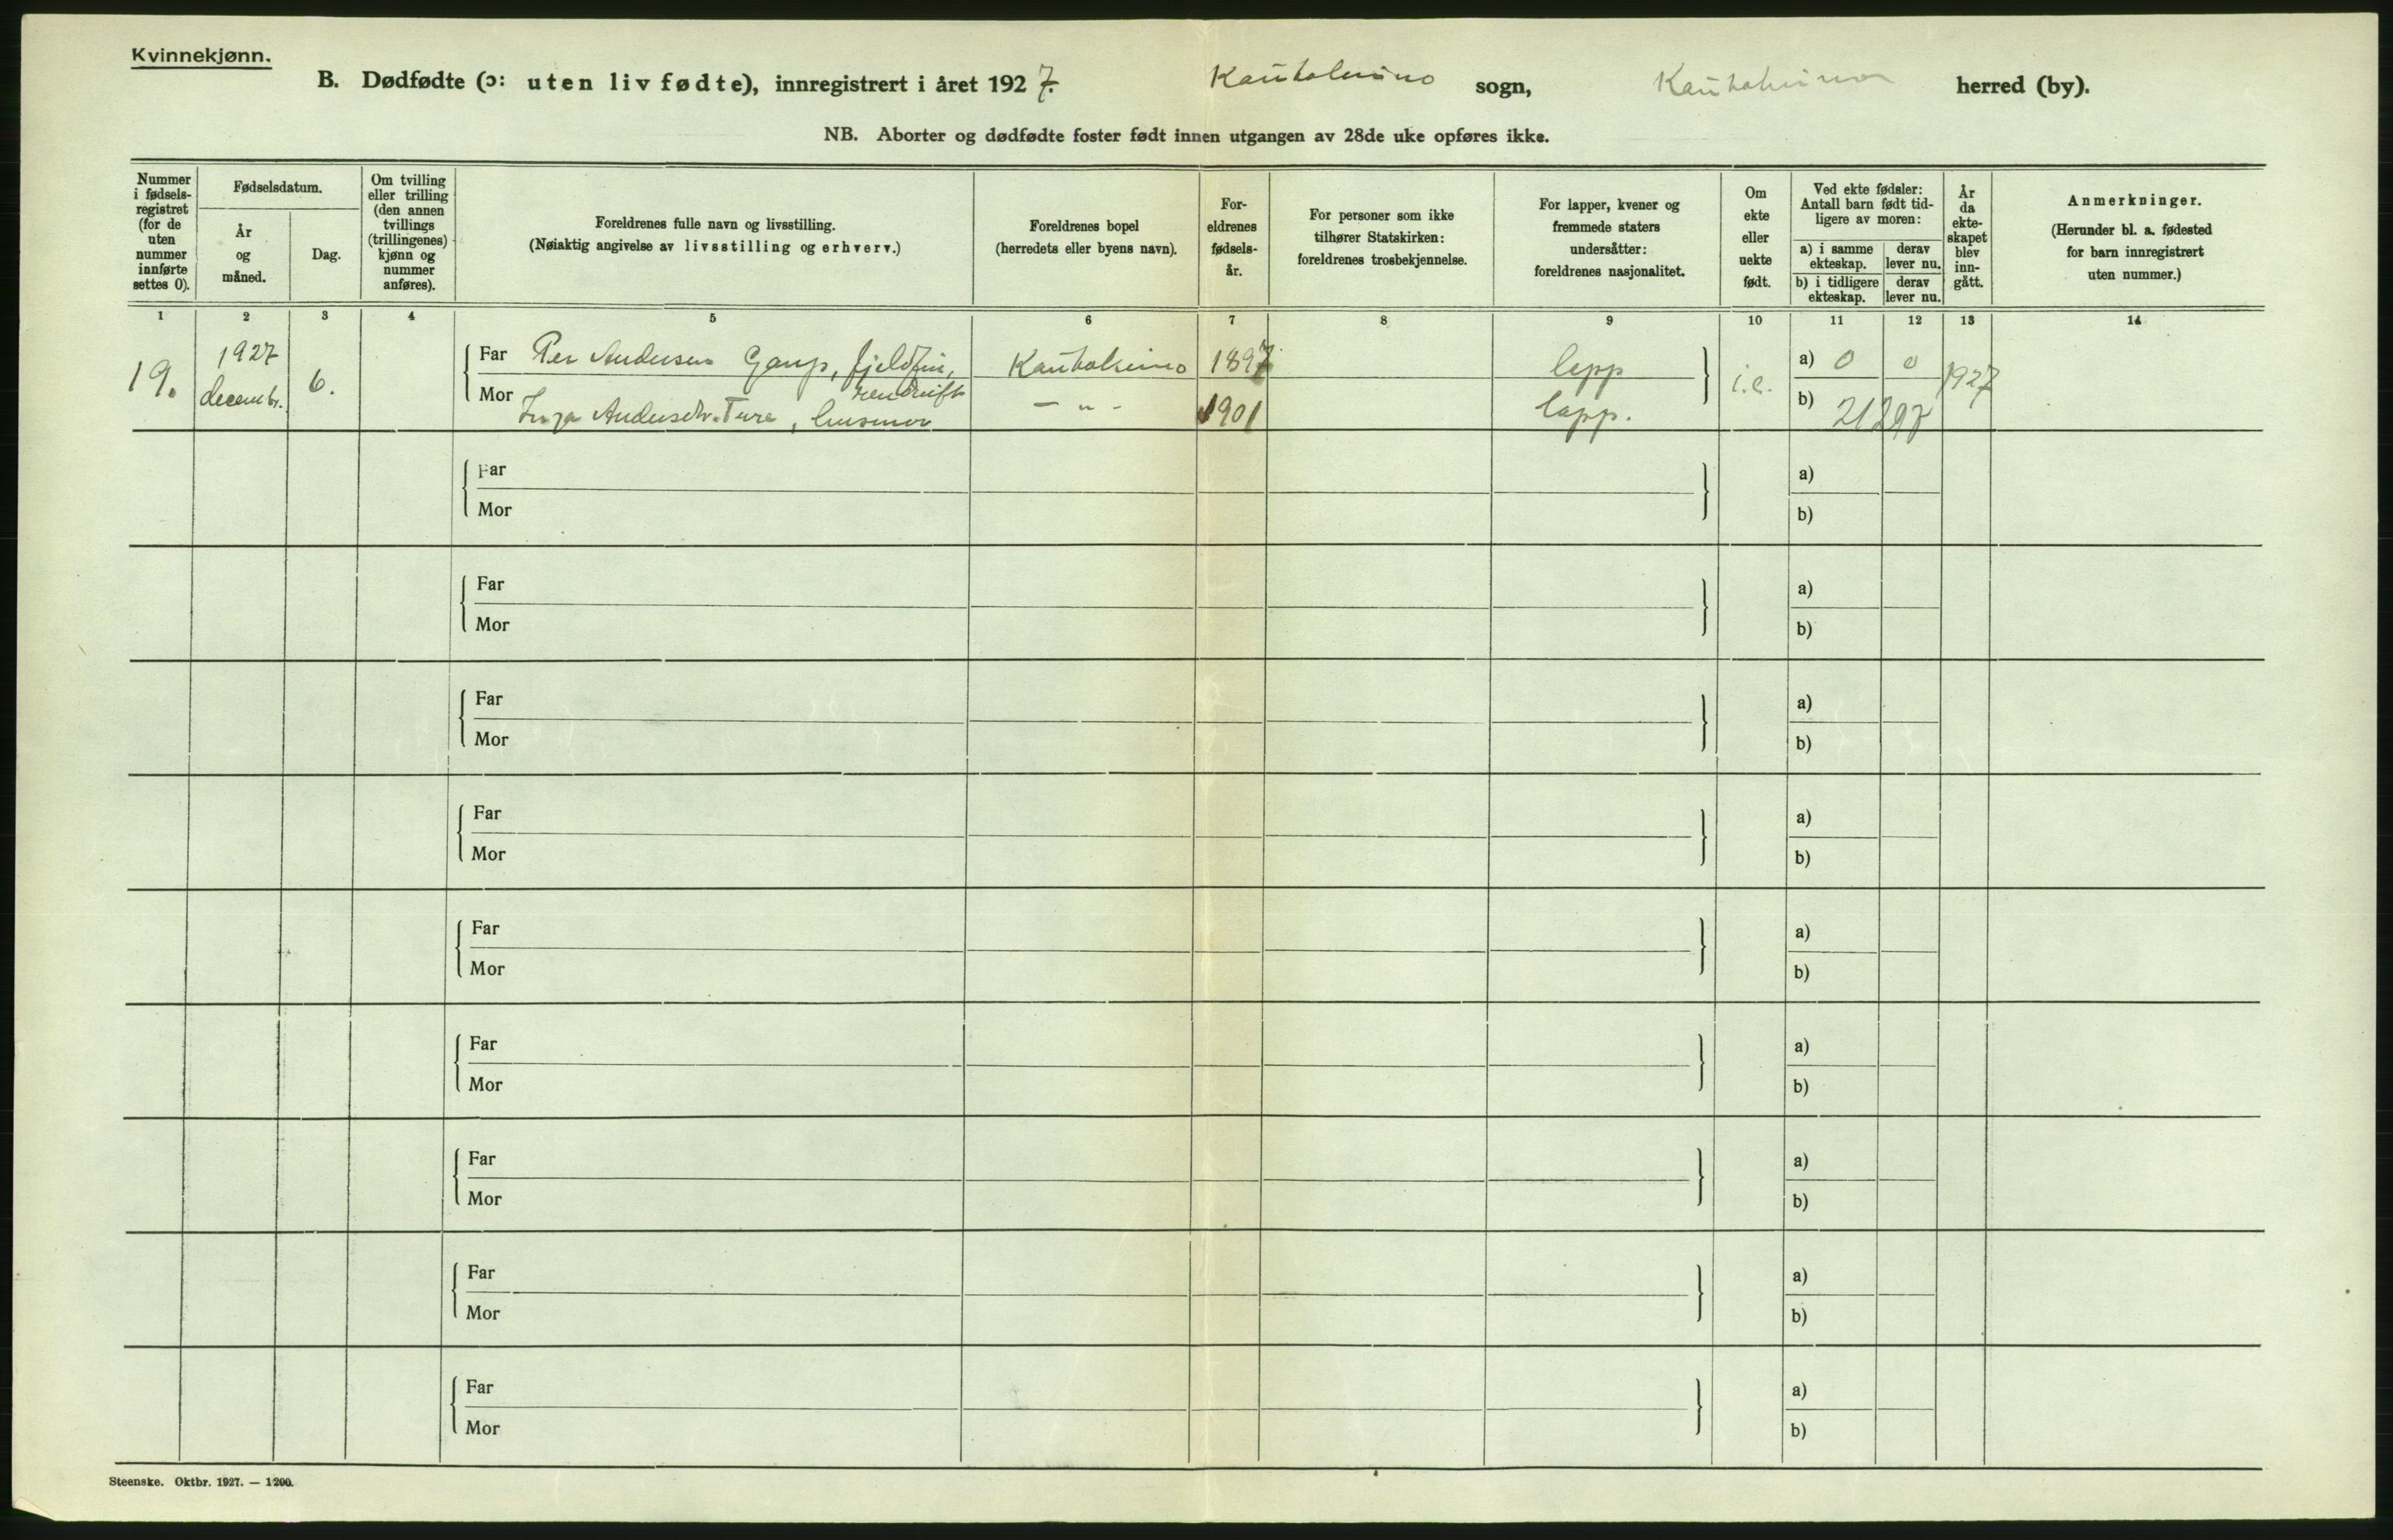 Kvinnekjønn.
B. Dødfødte (ɔ: uten liv fødte), innregistrert i året 1927. Kautokeino sogn, Kautokeino herred (by).
NB. Aborter og dødfødte foster født innen utgangen av 28de uke opføres ikke.
Nummer i fødsels-registret (for de uten nummer innførte settes 0).
Fødselsdatum.
År og måned.
Dag.
Om tvilling eller trilling (den annen tvillings (trillingenes) kjønn og nummer anføres).
Foreldrenes fulle navn og livsstilling.
(Nøiaktig angivelse av livsstilling og erhverv.)
Foreldrenes bopel
(herredets eller byens navn).
For-eldrenes fødsels-år.
For personer som ikke tilhører Statskirken: foreldrenes trosbekjennelse.
For lapper, kvener og fremmede staters undersåtter: foreldrenes nasjonalitet.
Om ekte eller uekte født.
Ved ekte fødsler: Antall barn født tid-ligere av moren:
a) i samme ekteskap.
derav lever nu.
b) i tidligere ekteskap.
derav lever nu.
År da ekte-skapet blev inn-gått.
Anmerkninger.
(Herunder bl. a. fødested for barn innregistrert uten nummer.)
1 2 3 4 5 6 7 8 9 10 11 12 13 14
19. 1927 decembr. 6.
Far Per Andersen Gaup, fjeldfin, rendrift Kautokeino 1897 lapp i.e. a) 0 0 1927
Mor Inga Andersdtr. Ture, husmor - " - 1901 lapp. b) 21897
Far a)
Mor b)
Far a)
Mor b)
Far a)
Mor b)
Far a)
Mor b)
Far a)
Mor b)
Far a)
Mor b)
Far a)
Mor b)
Far a)
Mor b)
Far a)
Mor b)
Steenske. Oktbr. 1927. — 1200.